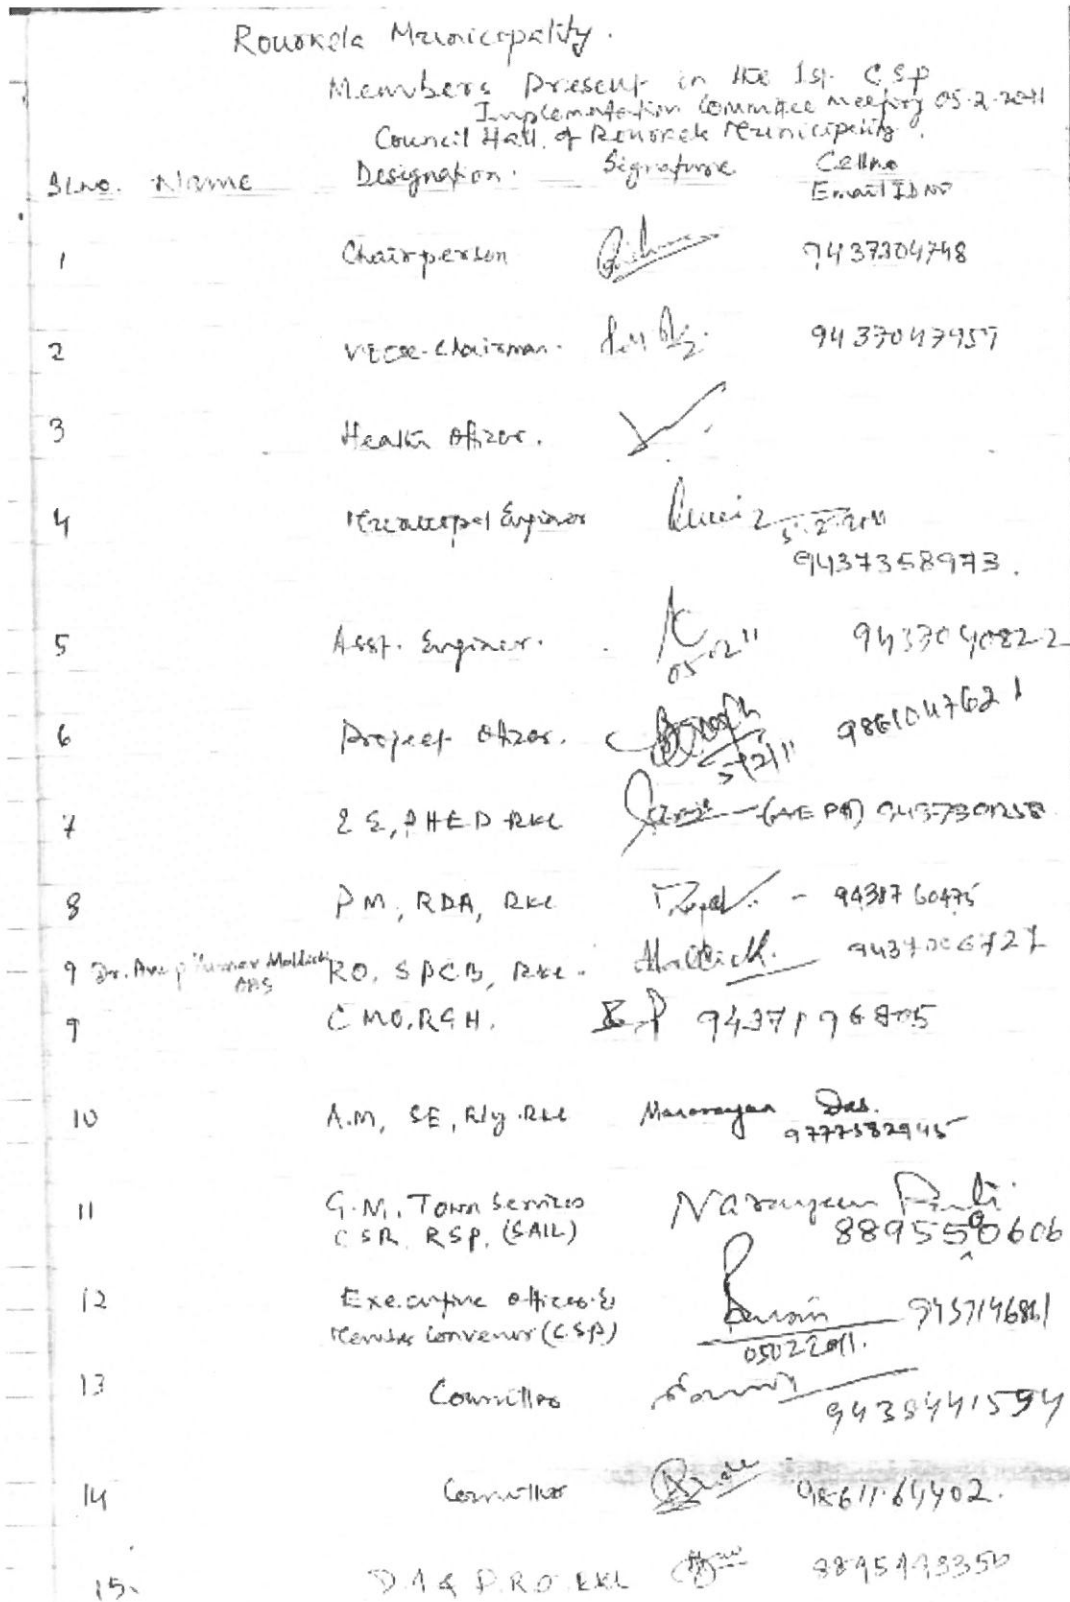 Rourkela Municipality.
Members Present in the 1st. CSP
Implementation Committee meeting 05.2.2011
Council Hall. of Rourkela Municipality.
Sl.no. Name Designation. Signature Cell no
Email ID No
1 Chairperson 9437304748
2 Vice-Chairman. 9437047957
3 Health Officer.
4 Municipal Engineer 5.2.2011
9437358973.
5 Asst. Engineer. 05.02.11 9437040822
6 Project Officer. 5/2/11 9861047621
7 EE, PHED RKL
8 PM, RDA, RKL - 9438760475
9 Dr. Anup Kumar Mallick RO, SPCB, RKL. Mallick. 9437206727
OPS
9 CMO, RGH. 9437196805
10 A.M, SE, Rly. RKL Das.
9777582945
11 G.M. Town Services Narayan
CSR, RSP, (SAIL) 8895500606
12 Executive Officer & 9437146861
Member Convenor (CSP) 05022011.
13 Councillor
9438441594
14 Councillor 9861164402.
15. & P.R.O. RKL